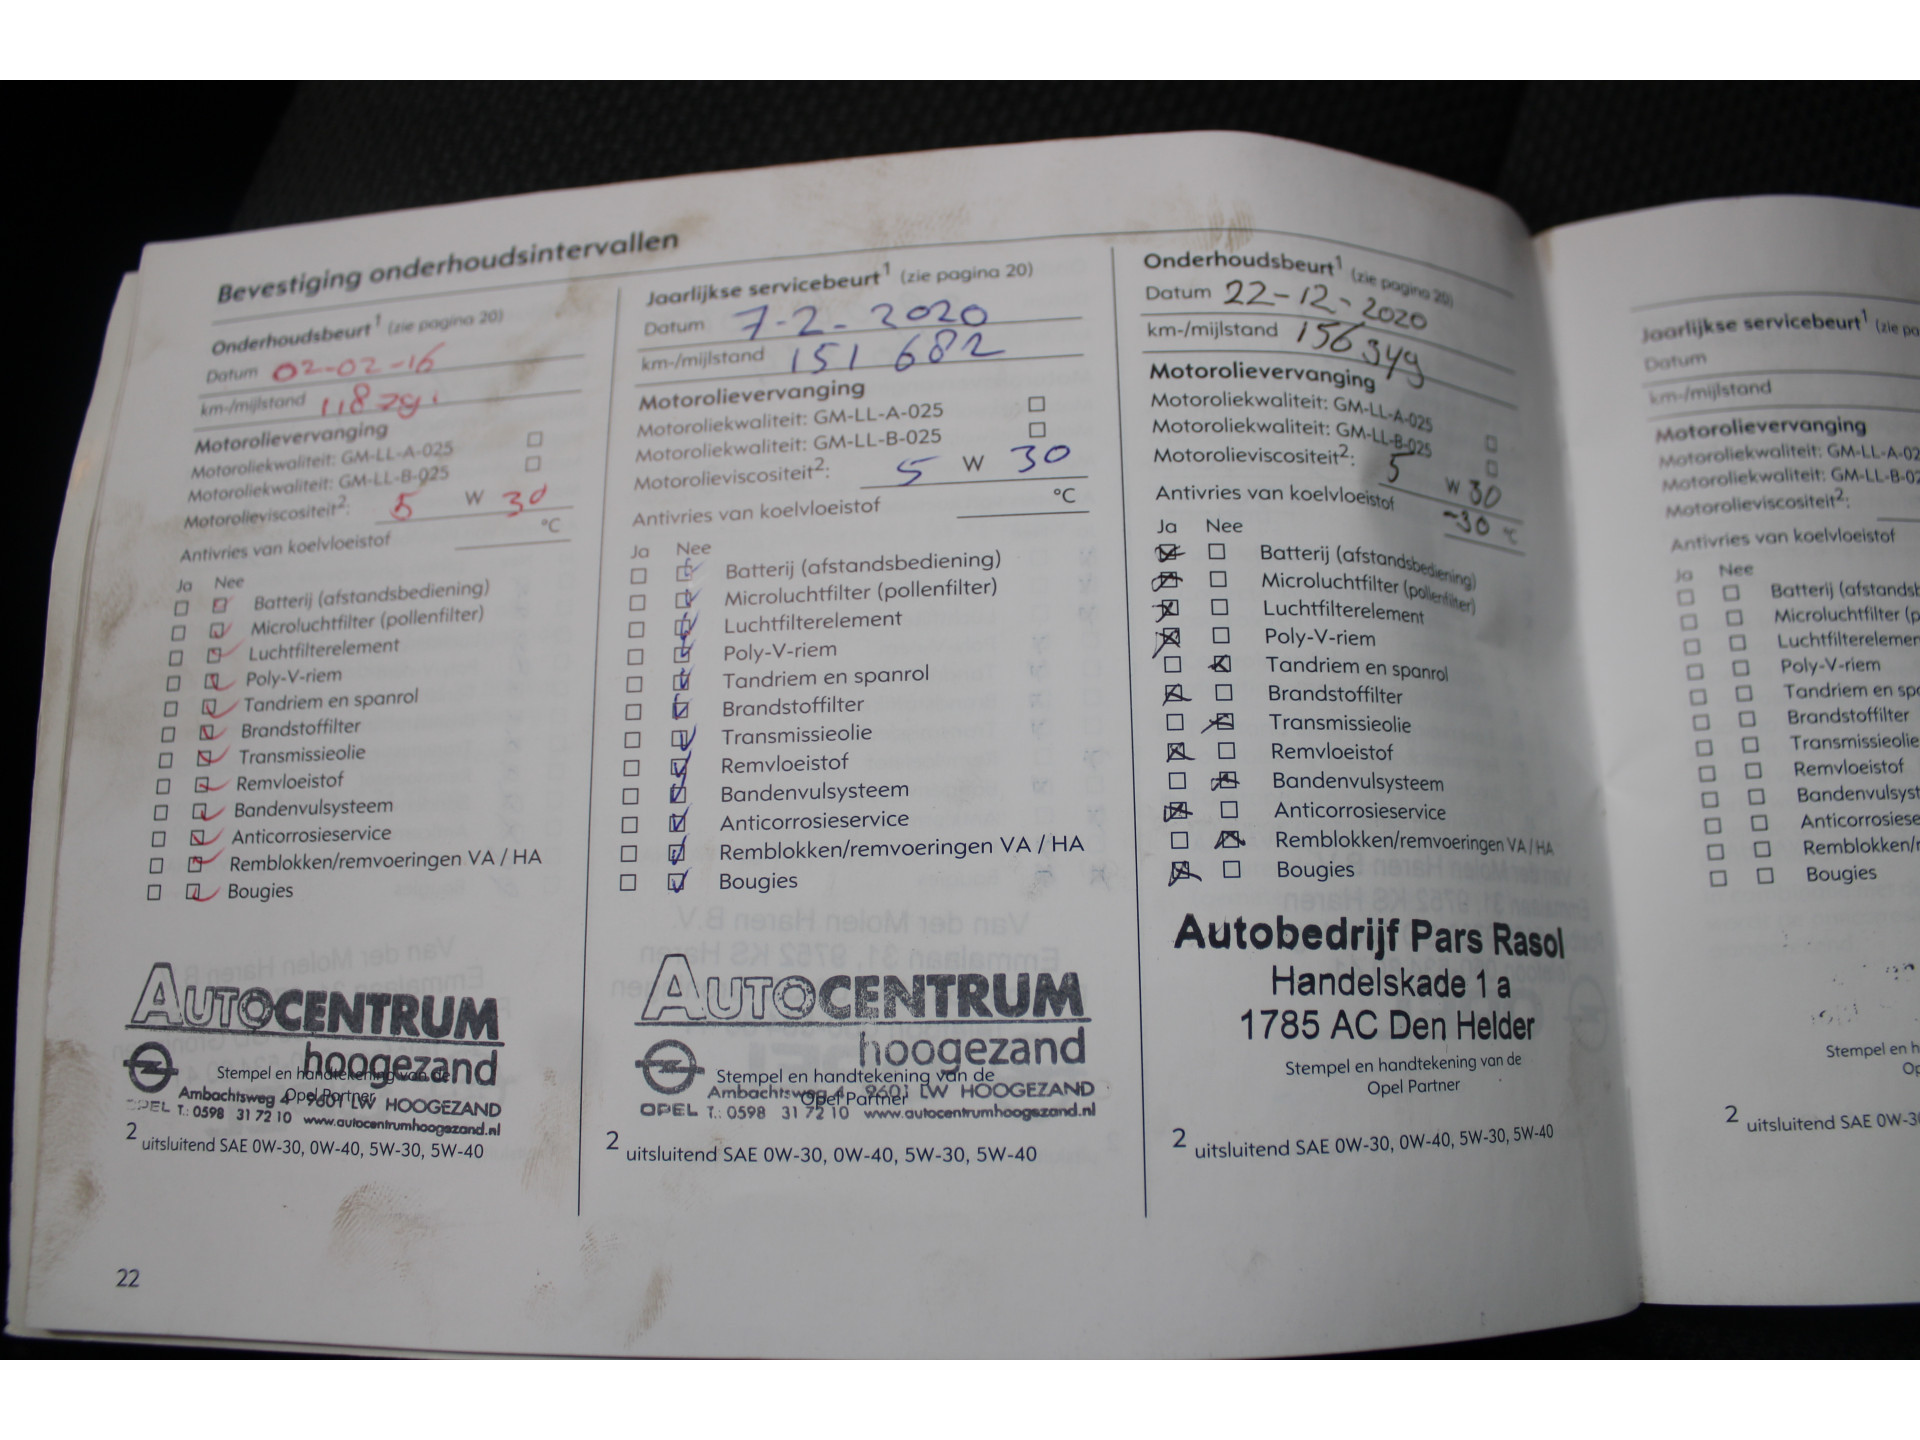 Bevestiging onderhoudsintervallen
Onderhoudsbeurt¹ (zie pagina 20)
Datum 02-02-16
km-/mijlstand
Motorolievervanging
Motoroliekwaliteit: GM-LL-A-025 ☐
Motoroliekwaliteit: GM-LL-B-025 ☐
Motorolieviscositeit²: 5 W 30
Antivries van koelvloeistof °C
Ja Nee
Batterij (afstandsbediening)
Microluchtfilter (pollenfilter)
Luchtfilterelement
Poly-V-riem
Tandriem en spanrol
Brandstoffilter
Transmissieolie
Remvloeistof
Bandenvulsysteem
Anticorrosieservice
Remblokken/remvoeringen VA / HA
Bougies
AUTOCENTRUM
hoogezand
Stempel en handtekening van de
Opel Partner
Ambachtsweg 4 9601 LW HOOGEZAND
OPEL T.: 0598 31 72 10 www.autocentrumhoogezand.nl
2 uitsluitend SAE 0W-30, 0W-40, 5W-30, 5W-40
22
Jaarlijkse servicebeurt¹ (zie pagina 20)
Datum 7-2-2020
km-/mijlstand 151 682
Motorolievervanging
Motoroliekwaliteit: GM-LL-A-025 ☐
Motoroliekwaliteit: GM-LL-B-025 ☐
Motorolieviscositeit²: 5 W 30
Antivries van koelvloeistof °C
Ja Nee
Batterij (afstandsbediening)
Microluchtfilter (pollenfilter)
Luchtfilterelement
Poly-V-riem
Tandriem en spanrol
Brandstoffilter
Transmissieolie
Remvloeistof
Bandenvulsysteem
Anticorrosieservice
Remblokken/remvoeringen VA / HA
Bougies
AUTOCENTRUM
hoogezand
Stempel en handtekening van de
Opel Partner
Ambachtsweg 4 9601 LW HOOGEZAND
OPEL T.: 0598 31 72 10 www.autocentrumhoogezand.nl
2 uitsluitend SAE 0W-30, 0W-40, 5W-30, 5W-40
Onderhoudsbeurt¹ (zie pagina 20)
Datum 22-12-2020
km-/mijlstand 156349
Motorolievervanging
Motoroliekwaliteit: GM-LL-A-025 ☐
Motoroliekwaliteit: GM-LL-B-025 ☐
Motorolieviscositeit²: 5 W 30
Antivries van koelvloeistof -30 °C
Ja Nee
Batterij (afstandsbediening)
Microluchtfilter (pollenfilter)
Luchtfilterelement
Poly-V-riem
Tandriem en spanrol
Brandstoffilter
Transmissieolie
Remvloeistof
Bandenvulsysteem
Anticorrosieservice
Remblokken/remvoeringen VA / HA
Bougies
Autobedrijf Pars Rasol
Handelskade 1 a
1785 AC Den Helder
Stempel en handtekening van de
Opel Partner
2 uitsluitend SAE 0W-30, 0W-40, 5W-30, 5W-40
Jaarlijkse servicebeurt¹ (zie
Datum
km-/mijlstand
Motorolievervanging
Motoroliekwaliteit:
Motoroliekwaliteit:
Motorolieviscositeit²:
Antivries van koelvloeistof
Ja Nee
Batterij
Microluchtfilter
Poly-V-riem
Tandriem en
Brandstoffilter
Transmissieolie
Remvloeistof
Bougies
Stempel en
2 uitsluitend SAE